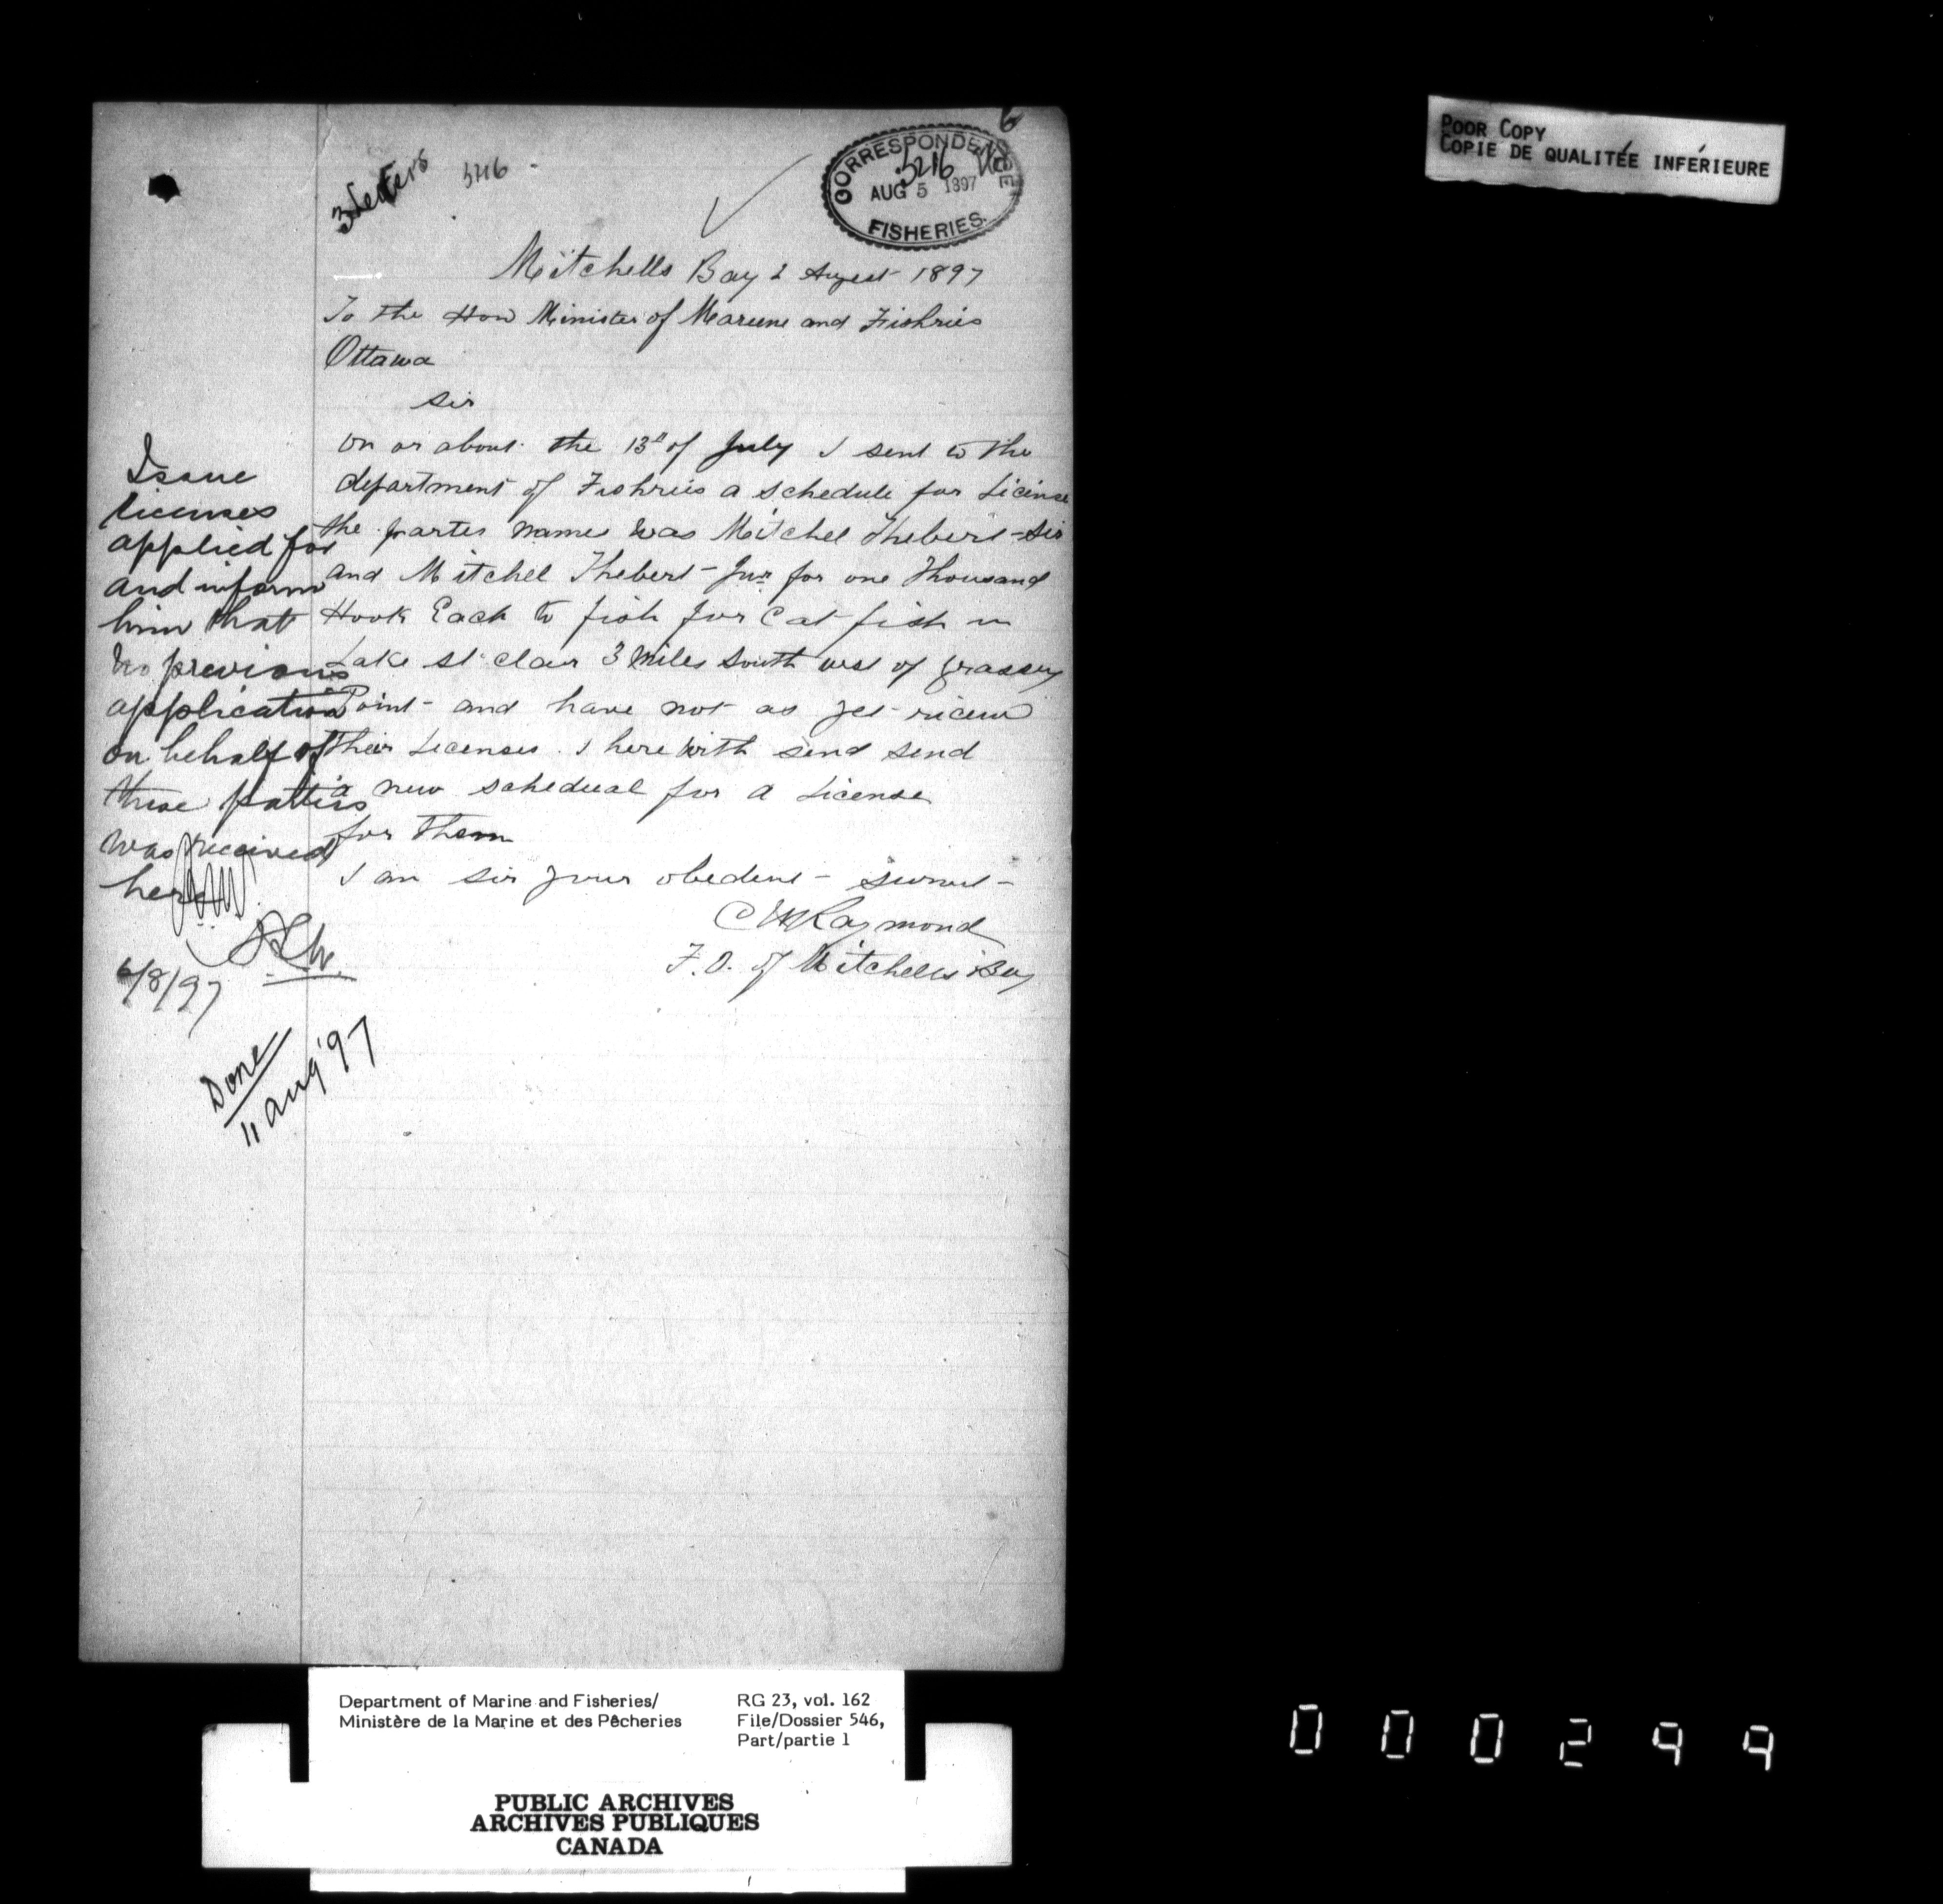 POOR COPY
COPIE DE QUALITÉE INFÉRIEURE
3 Letters 5216 -
CORRESPONDENCE
5216
AUG 5 1897
FISHERIES.
Mitchells Bay 2 August 1897
To the Hon Minister of Mareene and Fishries
Ottawa
sir
on or about the 13th of July I sent to the
department of Fishries a schedule for License
the partes names was Mitchel Thebert - Sir
and Mitchel Thebert - Junr for one Thousand
Hook Each to fish for Cat fish in
Lake St Clair 3 Miles South west of Grassey
Point - and have not as yet
their Licenses. I here with send send
a new schedual for a License
for them
I am sir your obedent -
C W Raymond
F. O. of Mitchells Bay
Issue
licenses
applied for
and inform
him that
no previous
application
on behalf of
these parties
was received
here
6/8/97
Done
11 Aug '97
Department of Marine and Fisheries/
Ministère de la Marine et des Pêcheries
RG 23, vol. 162
File/Dossier 546,
Part/partie 1
PUBLIC ARCHIVES
ARCHIVES PUBLIQUES
CANADA
000299